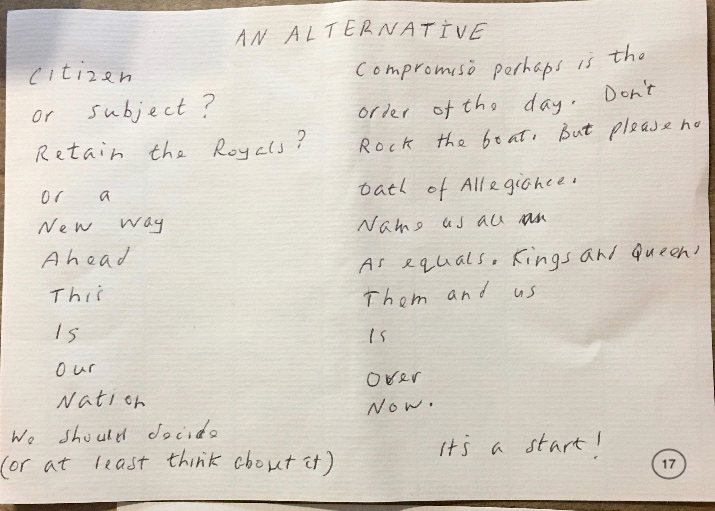 AN ALTERNATIVE
Citizen
or subject?
Retain the Royals?
or a
New way
Ahead
This
Is
Our
Nation
We should decide
(or at least think about it)
Compromise perhaps is the
order of the day. Don't
Rock the boat. But please no
Oath of Allegiance.
Name us all
As equals. Kings and Queens
Them and us
Is
Over
Now.
It's a start!
17